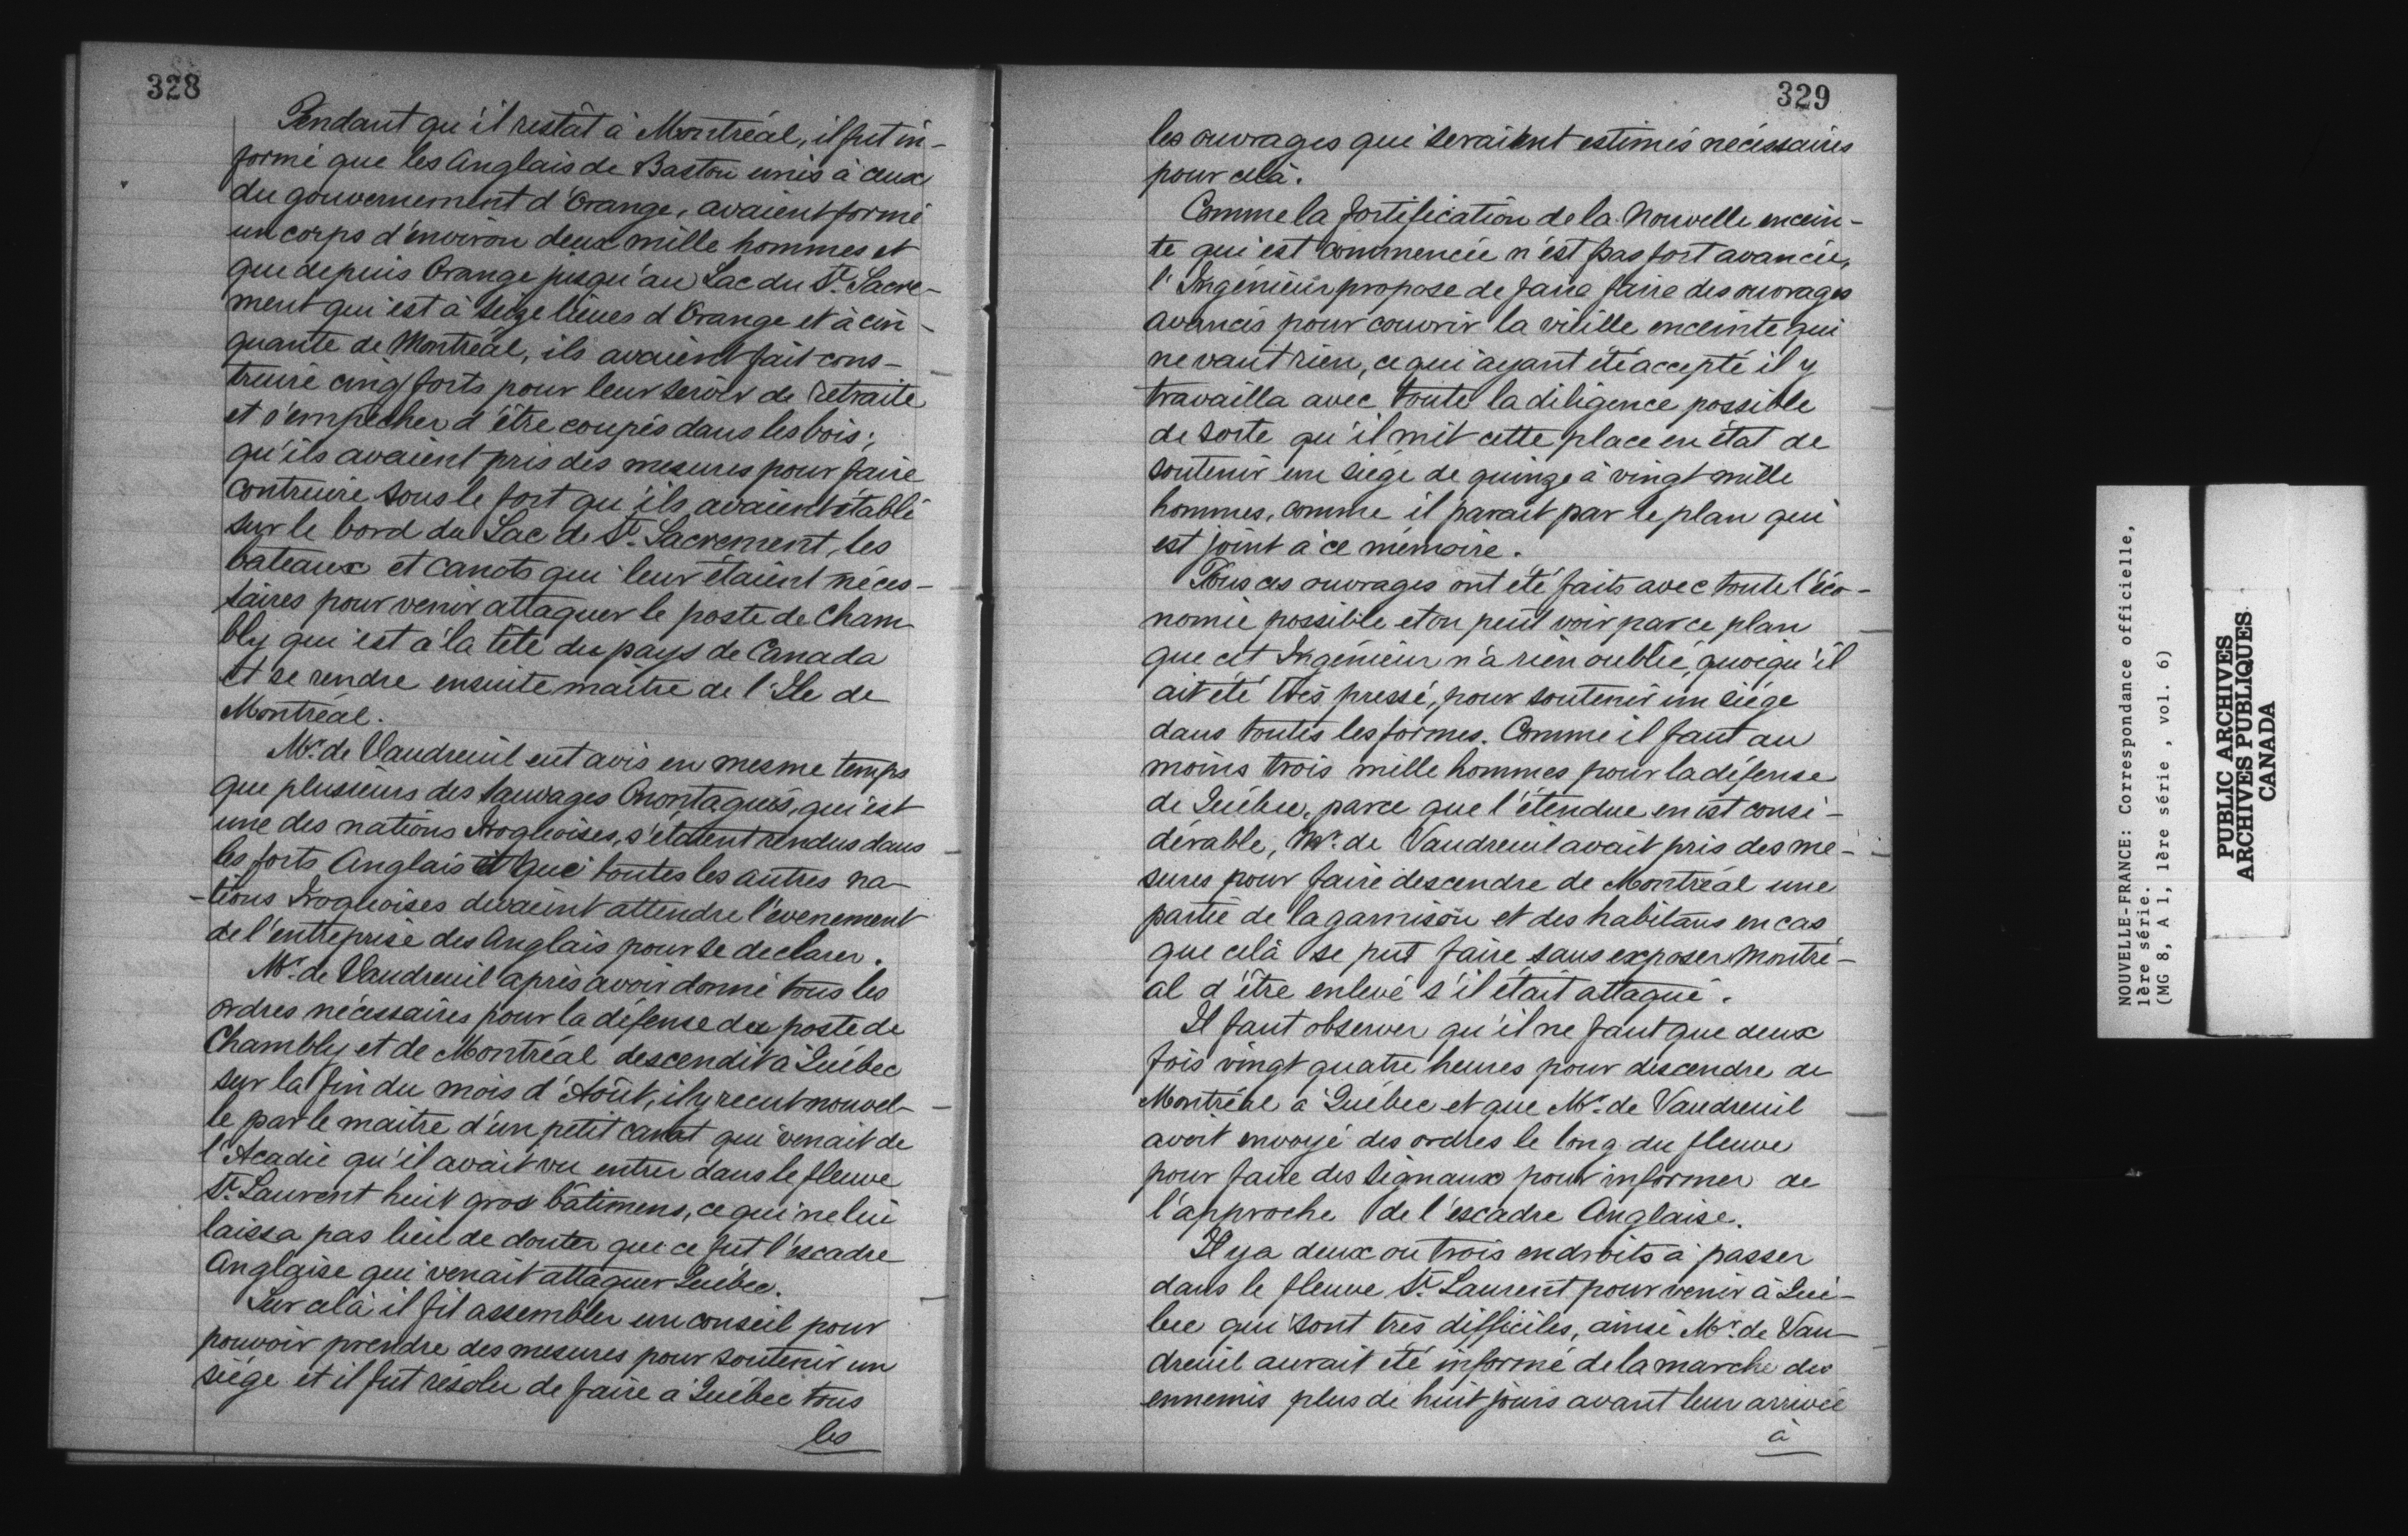 328
Pendant qu'il restât à Montréal, il fut in-
formé que les Anglais de Baston unis à ceux
du gouvernement d'Orange, avaient formé
un corps d'environ deux mille hommes et
que depuis Orange jusqu'au Lac du St. Sacre-
ment qui est à seize lieues d'Orange et à cin-
quante de Montréal, ils avaient fait cons-
truire cinq forts pour leur servir de retraite
et s'empêcher d'être coupés dans les bois;
qu'ils avaient pris des mesures pour faire
contruire sous le fort qu'ils avaient établi
sur le bord du Lac de St. Sacrement, les
bateaux et canots qui leur étaient néces-
saires pour venir attaquer le poste de Cham
bly qui est à la tête du pays de Canada
et se rendre ensuite maître de l'Ile de
Montréal.
Mr. de Vaudreuil eut avis en mesme temps
que plusieurs des sauvages Onontagués, qui est
une des nations Iroquoises, s'étaient rendus dans
les forts Anglais et que toutes les autres na-
-tions Iroquoises devaient attendre l'evenement
de l'entreprise des Anglais pour se declarer.
Mr. de Vaudreuil après avoir donné tous les
ordres nécessaires pour la défense du poste de
Chambly et de Montréal descendit à Québec
sur la fin du mois d'Août, il y recut nouvel-
le par le maitre d'un petit canot qui venait de
l'Acadie qu'il avait vu entrer dans le fleuve
St. Laurent huit gros bâtimens, ce qui ne lui
laissa pas lieu de douter que ce fut l'escadre
Anglaise qui venait attaquer Québec.
Sur celà il fit assembler un conseil pour
pouvoir prendre des mesures pour soutenir un
siége et il fut résolu de faire à Québec tous
les
329
les ouvrages qui seraient estimés nécessaires
pour celà.
Comme la fortification de la Nouvelle encein-
te qui est commencée n'est pas fort avancée,
l'Ingénieur propose de faire faire des ouvrages
avancés pour couvrir la vieille enceinte qui
ne vaut rien, ce qui ayant été accepté il y
travailla avec toute la diligence possible
de sorte qu'il mit cette place en état de
soutenir un siége de quinze à vingt mille
hommes, comme il parait par le plan qui
est joint à ce mémoire.
Tous ces ouvrages ont été faits avec toute l'éco-
nomie possible et on peut voir par ce plan
que cet Ingénieur n'a rien oublié, quoiqu'il
ait été très pressé, pour soutenir un siége
dans toutes les formes. Comme il faut au
moins trois mille hommes pour la défense
de Québec, parce que l'étendue en est consi-
dérable, Mr. de Vaudreuil avait pris des me-
sures pour faire descendre de Montréal une
partie de la garnison et des habitans en cas
que celà se put faire sans exposer Montré-
al d'être enlevé s'il était attaqué.
Il faut observer qu'il ne faut que deux
fois vingt quatre heures pour descendre de
Montréal à Québec et que Mr. de Vaudreuil
avoit envoyé des ordres le long du fleuve
pour faire des signaux pour informer de
l'approche de l'escadre Anglaise.
Il y a deux ou trois endroits à passer
dans le fleuve St. Laurent pour venir à Qué-
bec qui sont très difficiles, ainsi Mr. de Vau-
dreuil aurait été informé de la marche des
ennemis plus de huit jours avant leur arrivée
à
NOUVELLE-FRANCE: Correspondance officielle,
1ère série.
(MG 8, A 1, 1ère série , vol. 6)
PUBLIC ARCHIVES
ARCHIVES PUBLIQUES
CANADA